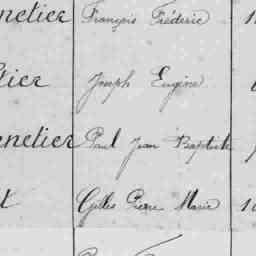 netier François Fréderic
tier Joseph Eugène
netier Paul Jean Baptiste
t Gilles Pierre Marie